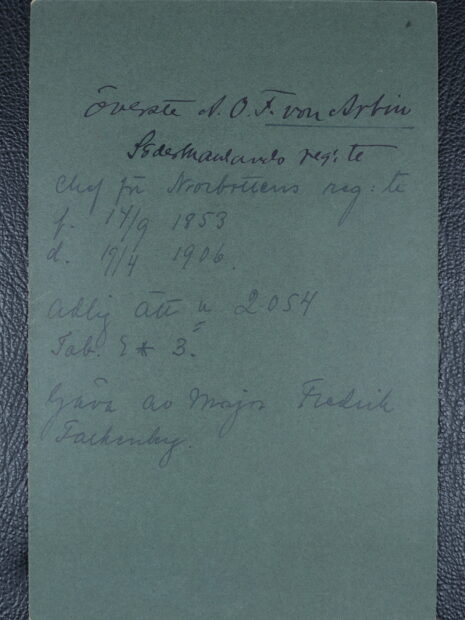 överste A. O. F. von Arbin
Södermanlands reg:te
chef för Norrbottens reg:te
f. 14/9 1853
d. 19/4 1906.
Adlig ätt n 2054
Tab. 3.
Gåva av Major Fredrik
Falkenberg.